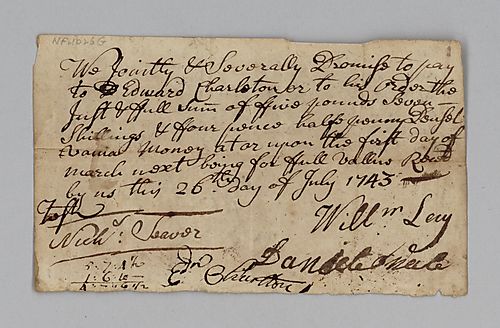 We Jointly & Severally Promise to pay
to Edward Charleton or to his Order the
Just & full Sum of ffive pounds Seven
Shillings & ffour pence halfpenny Pensel
vania Money at or upon the first day of
march next being for ffull Vallue Recd
by us this 26th Day of July 1743
Test
Willm Levy
Nichs. Seaver
Daniel